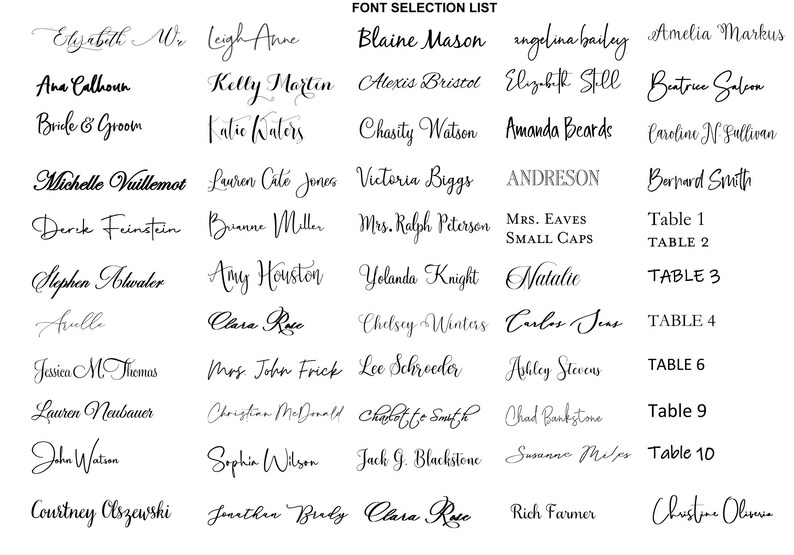 FONT SELECTION LIST
Elizabeth Wr
Leigh Anne
Blaine Mason
angelina bailey
Amelia Markus
Ana Calhoun
Kelly Martin
Alexis Bristol
Elizabeth Stell
Beatrice Salcon
Bride & Groom
Katie Waters
Chasity Watson
Amanda Beards
Caroline N. Sullivan
Michelle Vuillemot
Lauren Cate Jones
Victoria Biggs
ANDRESON
Bernard Smith
Derek Feinstein
Brianne Miller
Mrs. Ralph Peterson
Mrs. Eaves
Small Caps
Table 1
TABLE 2
Stephen Atwater
Amy Houston
Yolanda Knight
Natalie
TABLE 3
Arielle
Clara Rose
Chelsey Winters
Carlos Sens
TABLE 4
Jessica M Thomas
Mrs. John Frick
Lee Schroeder
Ashley Stevens
TABLE 6
Lauren Neubauer
Christian McDonald
Charlotte Smith
Chad Bankstone
Table 9
John Watson
Sophia Wilson
Jack G. Blackstone
Susanne Miles
Table 10
Courtney Olszewski
Jonathan Brady
Clara Rose
Rich Farmer
Christine Oliveria